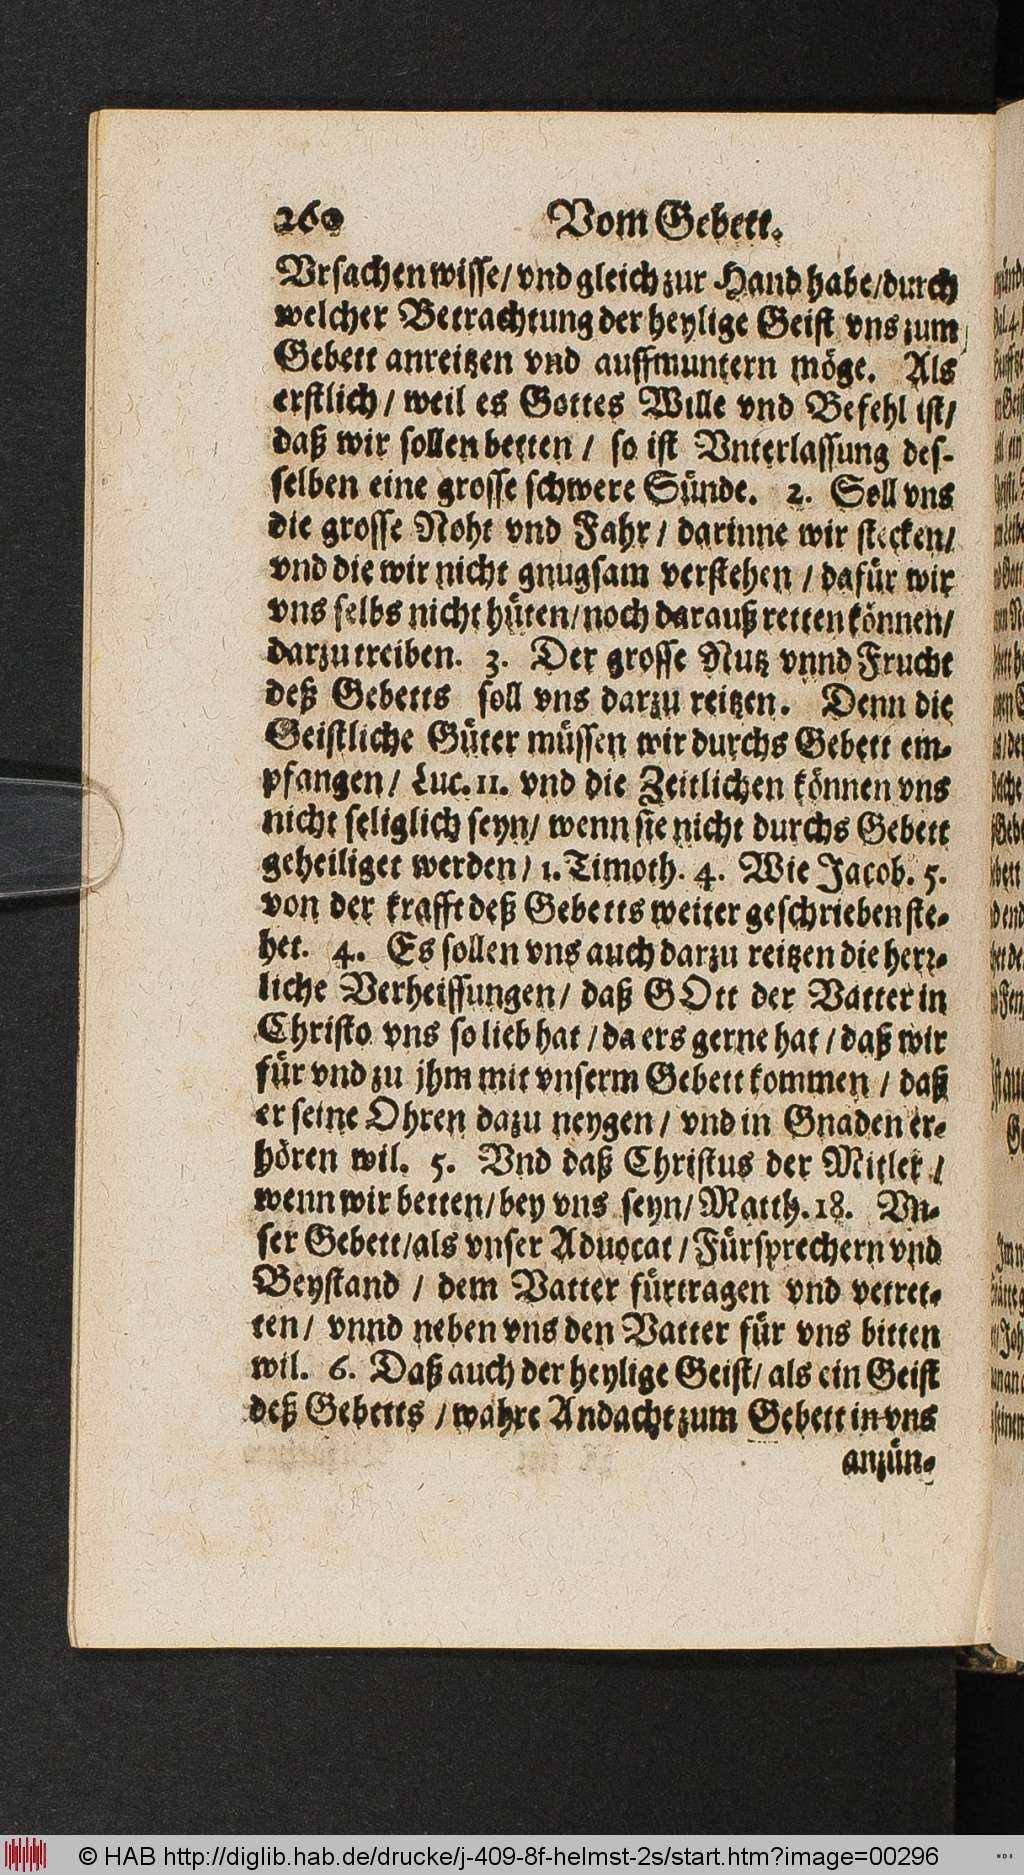 260 Vom Gebett.
Vrsachen wisse/ vnd gleich zur Hand habe/ durch
welcher Betrachtung der heylige Geist vns zum
Gebett anreitzen vnd auffmuntern möge. Als
erstlich/ weil es Gottes Wille vnd Befehl ist/
daß wir sollen betten/ so ist Vnterlassung des-
selben eine grosse schwere Sünde. 2. Soll vns
die grosse Noht vnd Fahr/ darinne wir stecken/
vnd die wir nicht gnugsam verstehen/ dafür wir
vns selbs nicht hüten/ noch darauß retten können/
darzu treiben. 3. Der grosse Nutz vnnd Frucht
deß Gebetts soll vns darzu reitzen. Denn die
Geistliche Güter müssen wir durchs Gebett em-
pfangen/ Luc. 11. vnd die Zeitlichen können vns
nicht seliglich seyn/ wenn sie nicht durchs Gebett
geheiliget werden/ 1. Timoth. 4. Wie Jacob. 5.
von der krafft deß Gebetts weiter geschrieben ste-
het. 4. Es sollen vns auch darzu reitzen die herz-
liche Verheissungen/ daß GOtt der Vatter in
Christo vns so lieb hat/ da ers gerne hat/ daß wir
für vnd zu jhm mit vnserm Gebett kommen/ daß
er seine Ohren dazu neygen/ vnd in Gnaden er-
hören wil. 5. Vnd daß Christus der Mitler/
wenn wir betten/ bey vns seyn/ Matth. 18. Vn-
ser Gebett/ als vnser Aduocat/ Fürsprechern vnd
Beystand/ dem Vatter fürtragen vnd vetret-
ten/ vnnd neben vns den Vatter für vns bitten
wil. 6. Daß auch der heylige Geist/ als ein Geist
deß Gebetts/ wahre Andacht zum Gebett in vns
anzün-
© HAB http://diglib.hab.de/drucke/j-409-8f-helmst-2s/start.htm?image=00296